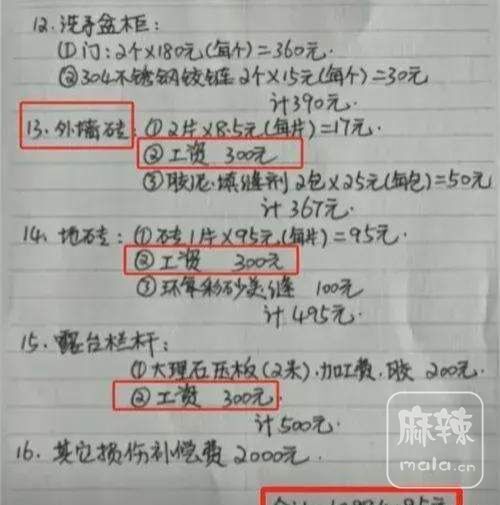 12. 洗手盆柜:
①门:2个×180元(每个)=360元.
②304不锈钢铰链 2个×15元(每个)=30元
计390元.
13. 外墙砖:①2片×8.5元(每片)=17元.
②工资 300元
③胶泥.填缝剂 2包×25元(每包)=50元
计367元.
14. 地砖:①砖1片×95元.(每片)=95元.
②工资 300元
③环氧彩砂美缝 100元
计495元.
15. 露台栏杆:
①大理石压板(2米).加工费.胶 200元.
②工资 300元
计500元.
16. 其它损伤补偿费2000元.
麻辣
mala.cn